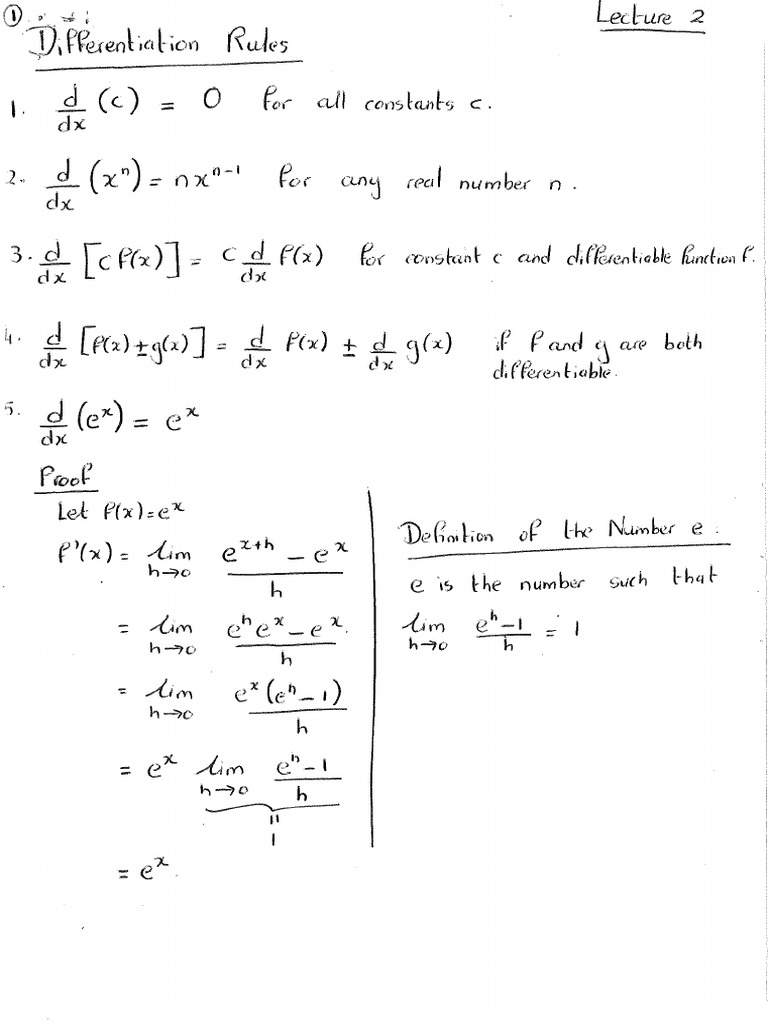 ① Lecture 2
Differentiation Rules
1. d/dx (c) = 0 for all constants c.
2. d/dx (xⁿ) = nxⁿ⁻¹ for any real number n.
3. d/dx [c f(x)] = c d/dx f(x) for constant c and differentiable function f.
4. d/dx [f(x) ± g(x)] = d/dx f(x) ± d/dx g(x) if f and g are both
differentiable.
5. d/dx (eˣ) = eˣ
Proof
Let f(x) = eˣ
f'(x) = lim h→0 (eˣ⁺ʰ − eˣ)/h
= lim h→0 (eʰeˣ − eˣ)/h
= lim h→0 eˣ(eʰ − 1)/h
= eˣ lim h→0 (eʰ − 1)/h
=
1
= eˣ.
Definition of the Number e:
e is the number such that
lim h→0 (eʰ − 1)/h = 1